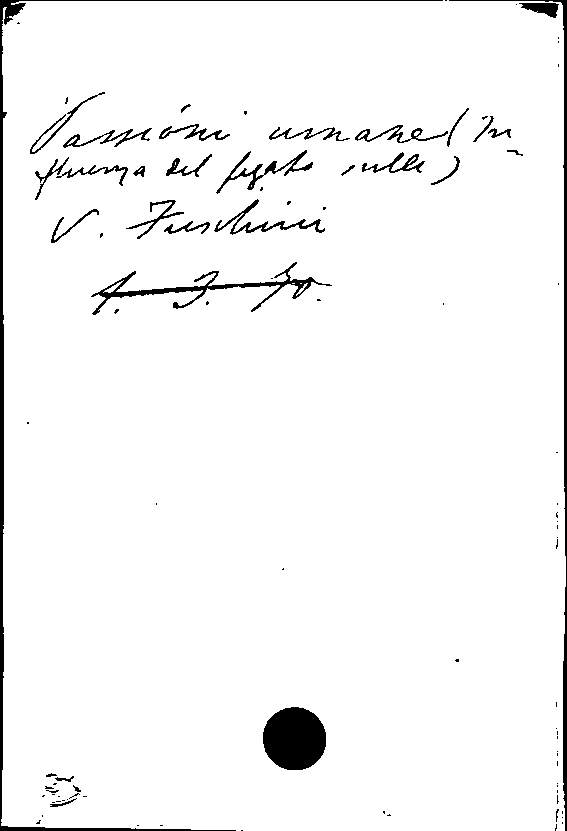 Passioni umane (In-
fluenza del fegato sulle)
V. Fuschini
1. 3. 30.